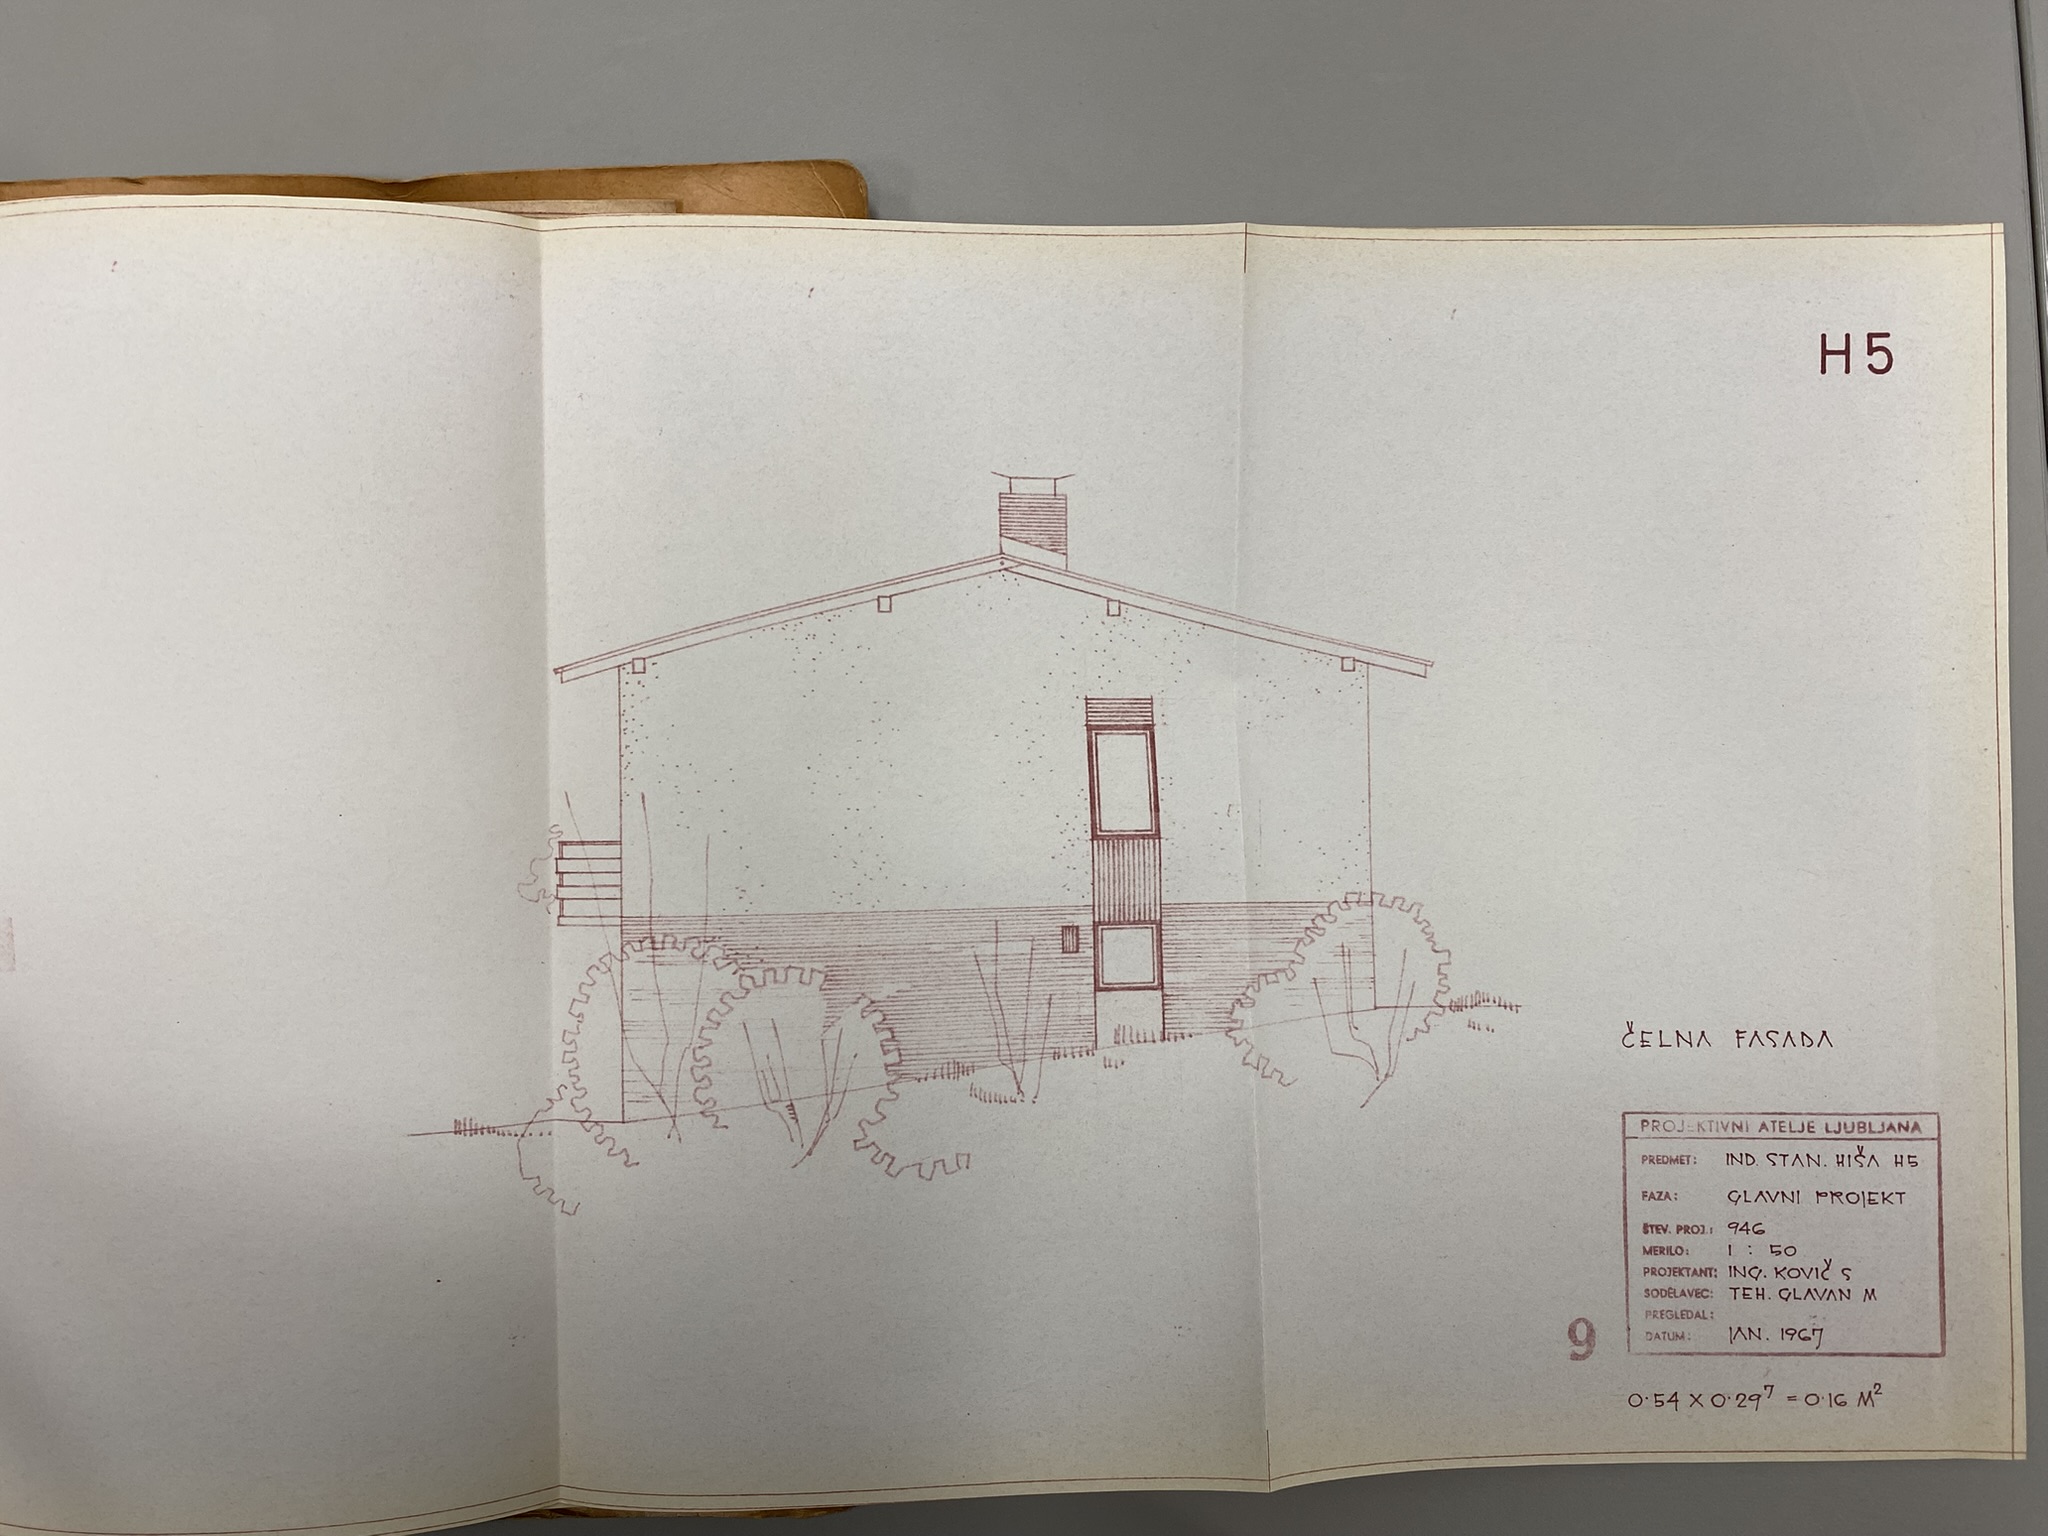 H5
ČELNA FASADA
PROJEKTIVNI ATELJE LJUBLJANA
PREDMET: IND. STAN. HIŠA H5
FAZA: GLAVNI PROJEKT
ŠTEV. PROJ.: 946
MERILO: 1 : 50
PROJEKTANT: ING. KOVIČ S
SODELAVEC: TEH. GLAVAN M
PREGLEDAL:
DATUM: JAN. 1967
9
0.54 X 0.29⁷ = 0.16 M²